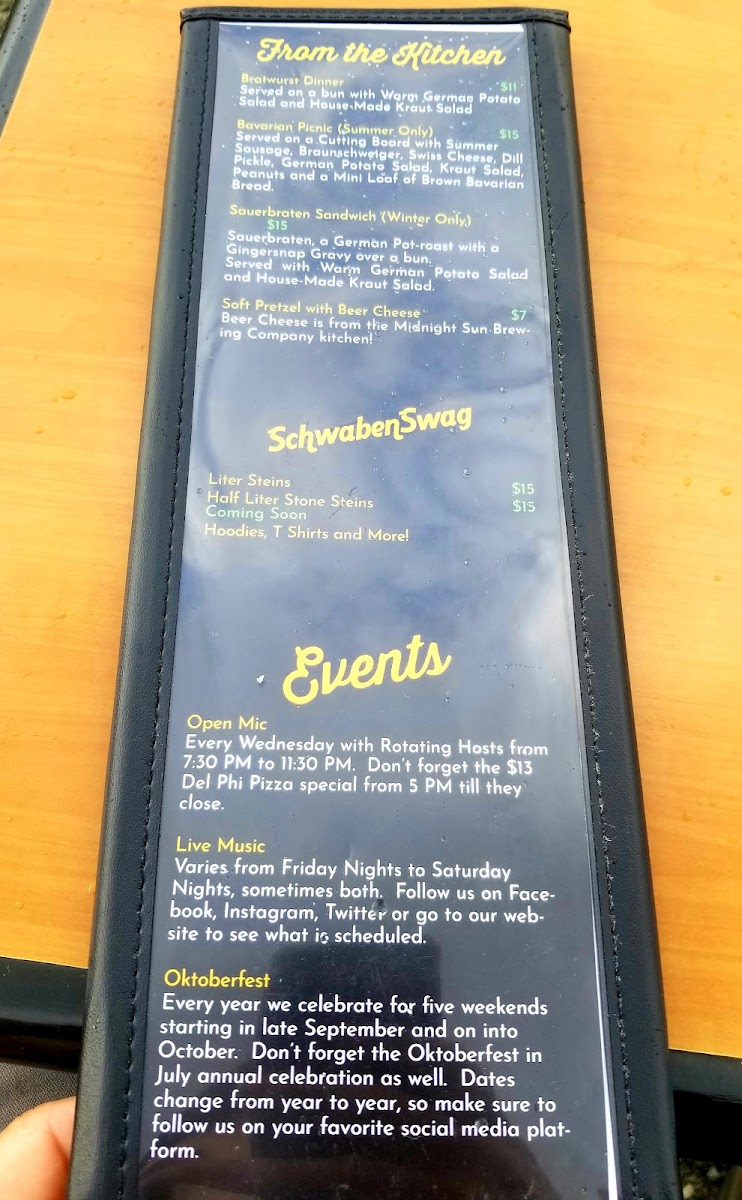 From the Kitchen
Bratwurst Dinner $11
Served on a bun with Warm German Potato
Salad and House-Made Kraut Salad
Bavarian Picnic (Summer Only) $15
Served on a Cutting Board with Summer
Sausage, Braunschweiger, Swiss Cheese, Dill
Pickle, German Potato Salad, Kraut Salad,
Peanuts and a Mini Loaf of Brown Bavarian
Bread.
Sauerbraten Sandwich (Winter Only)
$15
Sauerbraten, a German Pot-roast with a
Gingersnap Gravy over a bun.
Served with Warm German Potato Salad
and House-Made Kraut Salad.
Soft Pretzel with Beer Cheese $7
Beer Cheese is from the Midnight Sun Brew-
ing Company kitchen!
SchwabenSwag
Liter Steins $15
Half Liter Stone Steins $15
Coming Soon
Hoodies, T Shirts and More!
Events
Open Mic
Every Wednesday with Rotating Hosts from
7:30 PM to 11:30 PM. Don't forget the $13
Del Phi Pizza special from 5 PM till they
close.
Live Music
Varies from Friday Nights to Saturday
Nights, sometimes both. Follow us on Face-
book, Instagram, Twitter or go to our web-
site to see what is scheduled.
Oktoberfest
Every year we celebrate for five weekends
starting in late September and on into
October. Don't forget the Oktoberfest in
July annual celebration as well. Dates
change from year to year, so make sure to
follow us on your favorite social media plat-
form.